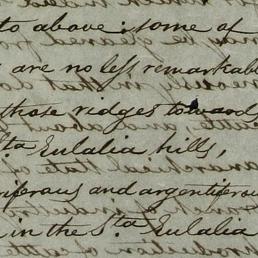 to above: some of
are no less remarkable
those ridges towards
Sta Eulalia hills,
niferous and argentiferou
in the Sta Eulalia